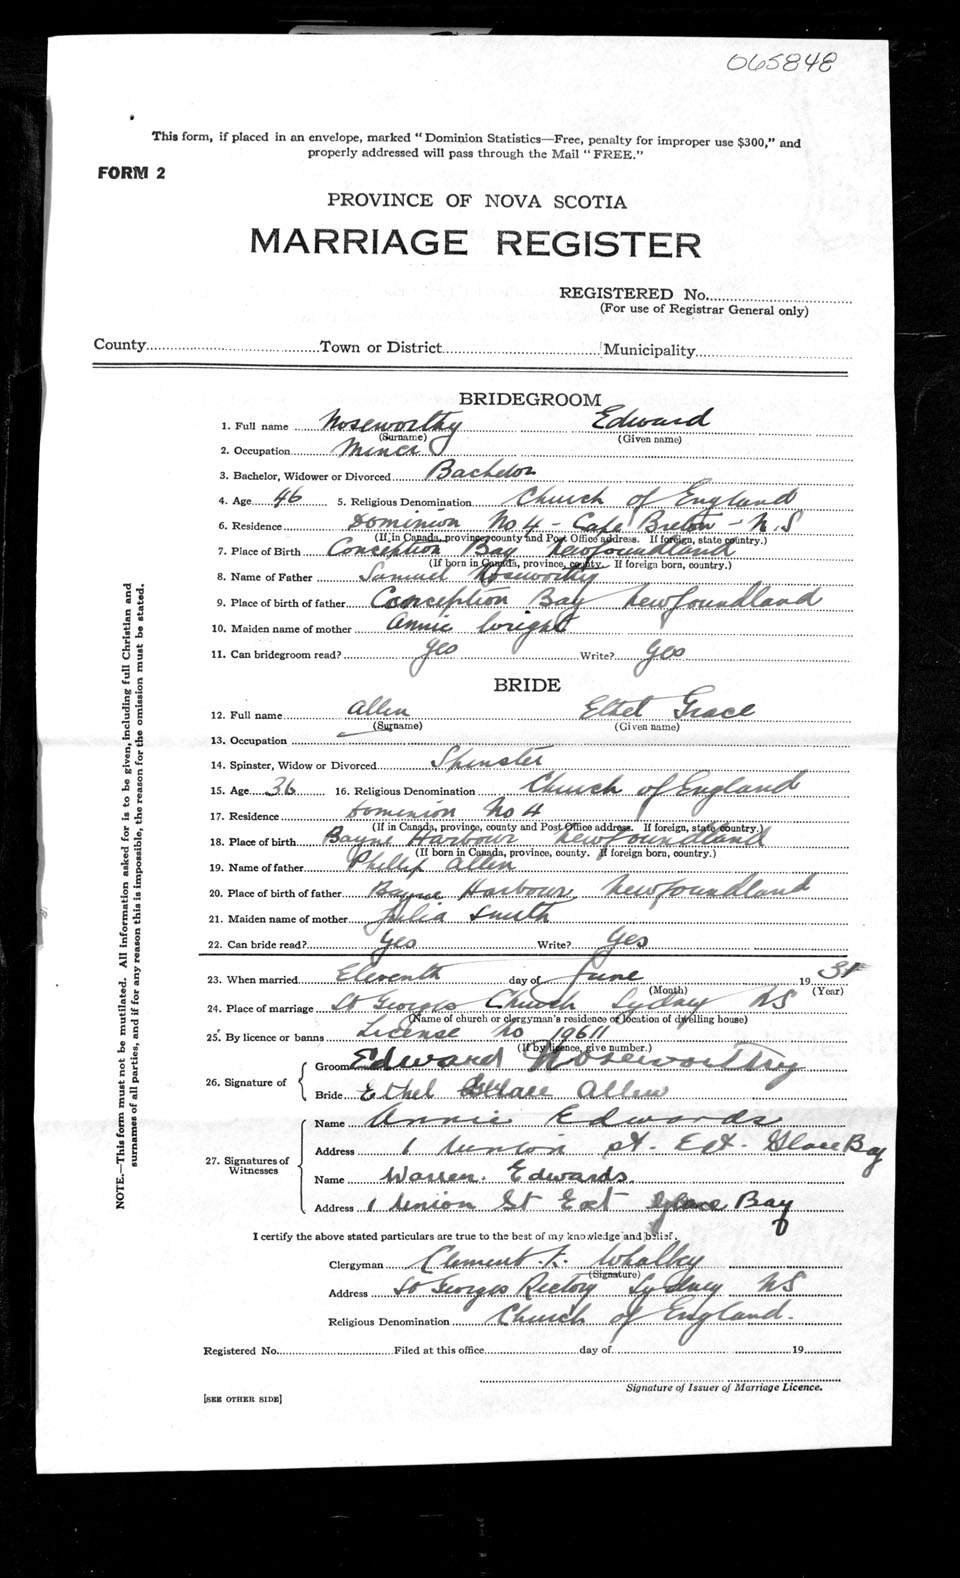 065848
This form, if placed in an envelope, marked "Dominion Statistics—Free, penalty for improper use $300," and
properly addressed will pass through the Mail "FREE."
FORM 2
PROVINCE OF NOVA SCOTIA
MARRIAGE REGISTER
REGISTERED No.
(For use of Registrar General only)
County Town or District Municipality
BRIDEGROOM
1. Full name Noseworthy Edward
(Surname) (Given name)
2. Occupation Miner
3. Bachelor, Widower or Divorced Bachelor
4. Age 46 5. Religious Denomination Church of England
6. Residence Dominion No 4 - Cape Breton - N.S
(If in Canada, province, county and Post Office address. If foreign, state country.)
7. Place of Birth Conception Bay Newfoundland
(If born in Canada, province, county. If foreign born, country.)
8. Name of Father Samuel Noseworthy
9. Place of birth of father Conception Bay Newfoundland
10. Maiden name of mother Annie Wright
11. Can bridegroom read? yes Write? yes
BRIDE
12. Full name Allen Ethel Grace
(Surname) (Given name)
13. Occupation
14. Spinster, Widow or Divorced Spinster
15. Age 36 16. Religious Denomination Church of England
17. Residence Dominion No 4
(If in Canada, province, county and Post Office address. If foreign, state country.)
18. Place of birth Bayne Harbour Newfoundland
(If born in Canada, province, county. If foreign born, country.)
19. Name of father Philip Allen
20. Place of birth of father Bayne Harbour Newfoundland
21. Maiden name of mother Julia Smith
22. Can bride read? yes Write? yes
23. When married Eleventh day of June 19 31
(Month) (Year)
24. Place of marriage St Georges Church Sydney NS
(Name of church or clergyman's residence or location of dwelling house)
25. By licence or banns License no 19611
(If by licence, give number.)
26. Signature of
Groom Edward Noseworthy
Bride Ethel Grace Allen
27. Signatures of Witnesses
Name Annie Edwards
Address 1 Union St. Ext. Glace Bay
Name Warren Edwards.
Address 1 Union St Ext Glace Bay
I certify the above stated particulars are true to the best of my knowledge and belief.
Clergyman Clement F. Whalley
(Signature)
Address St Georges Rectory Sydney NS
Religious Denomination Church of England.
Registered No. Filed at this office day of 19
Signature of Issuer of Marriage Licence.
[SEE OTHER SIDE]
NOTE.—This form must not be mutilated. All information asked for is to be given, including full Christian and
surnames of all parties, and if for any reason this is impossible, the reason for the omission must be stated.